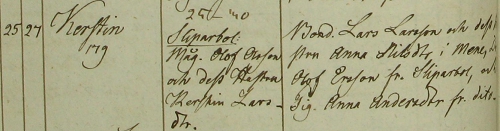 25 27 Kerstin
179
Sliparbol.
Måg. Olof Olofson
och dess Hustru
Kerstin Lars-
dtr.
Bond. Lars Larsson och dess
stru Anna Nilsdtr, i Mene,
Olof Ersson fr. Sliparbol, och
Pig. Anna Andersdtr fr. dito